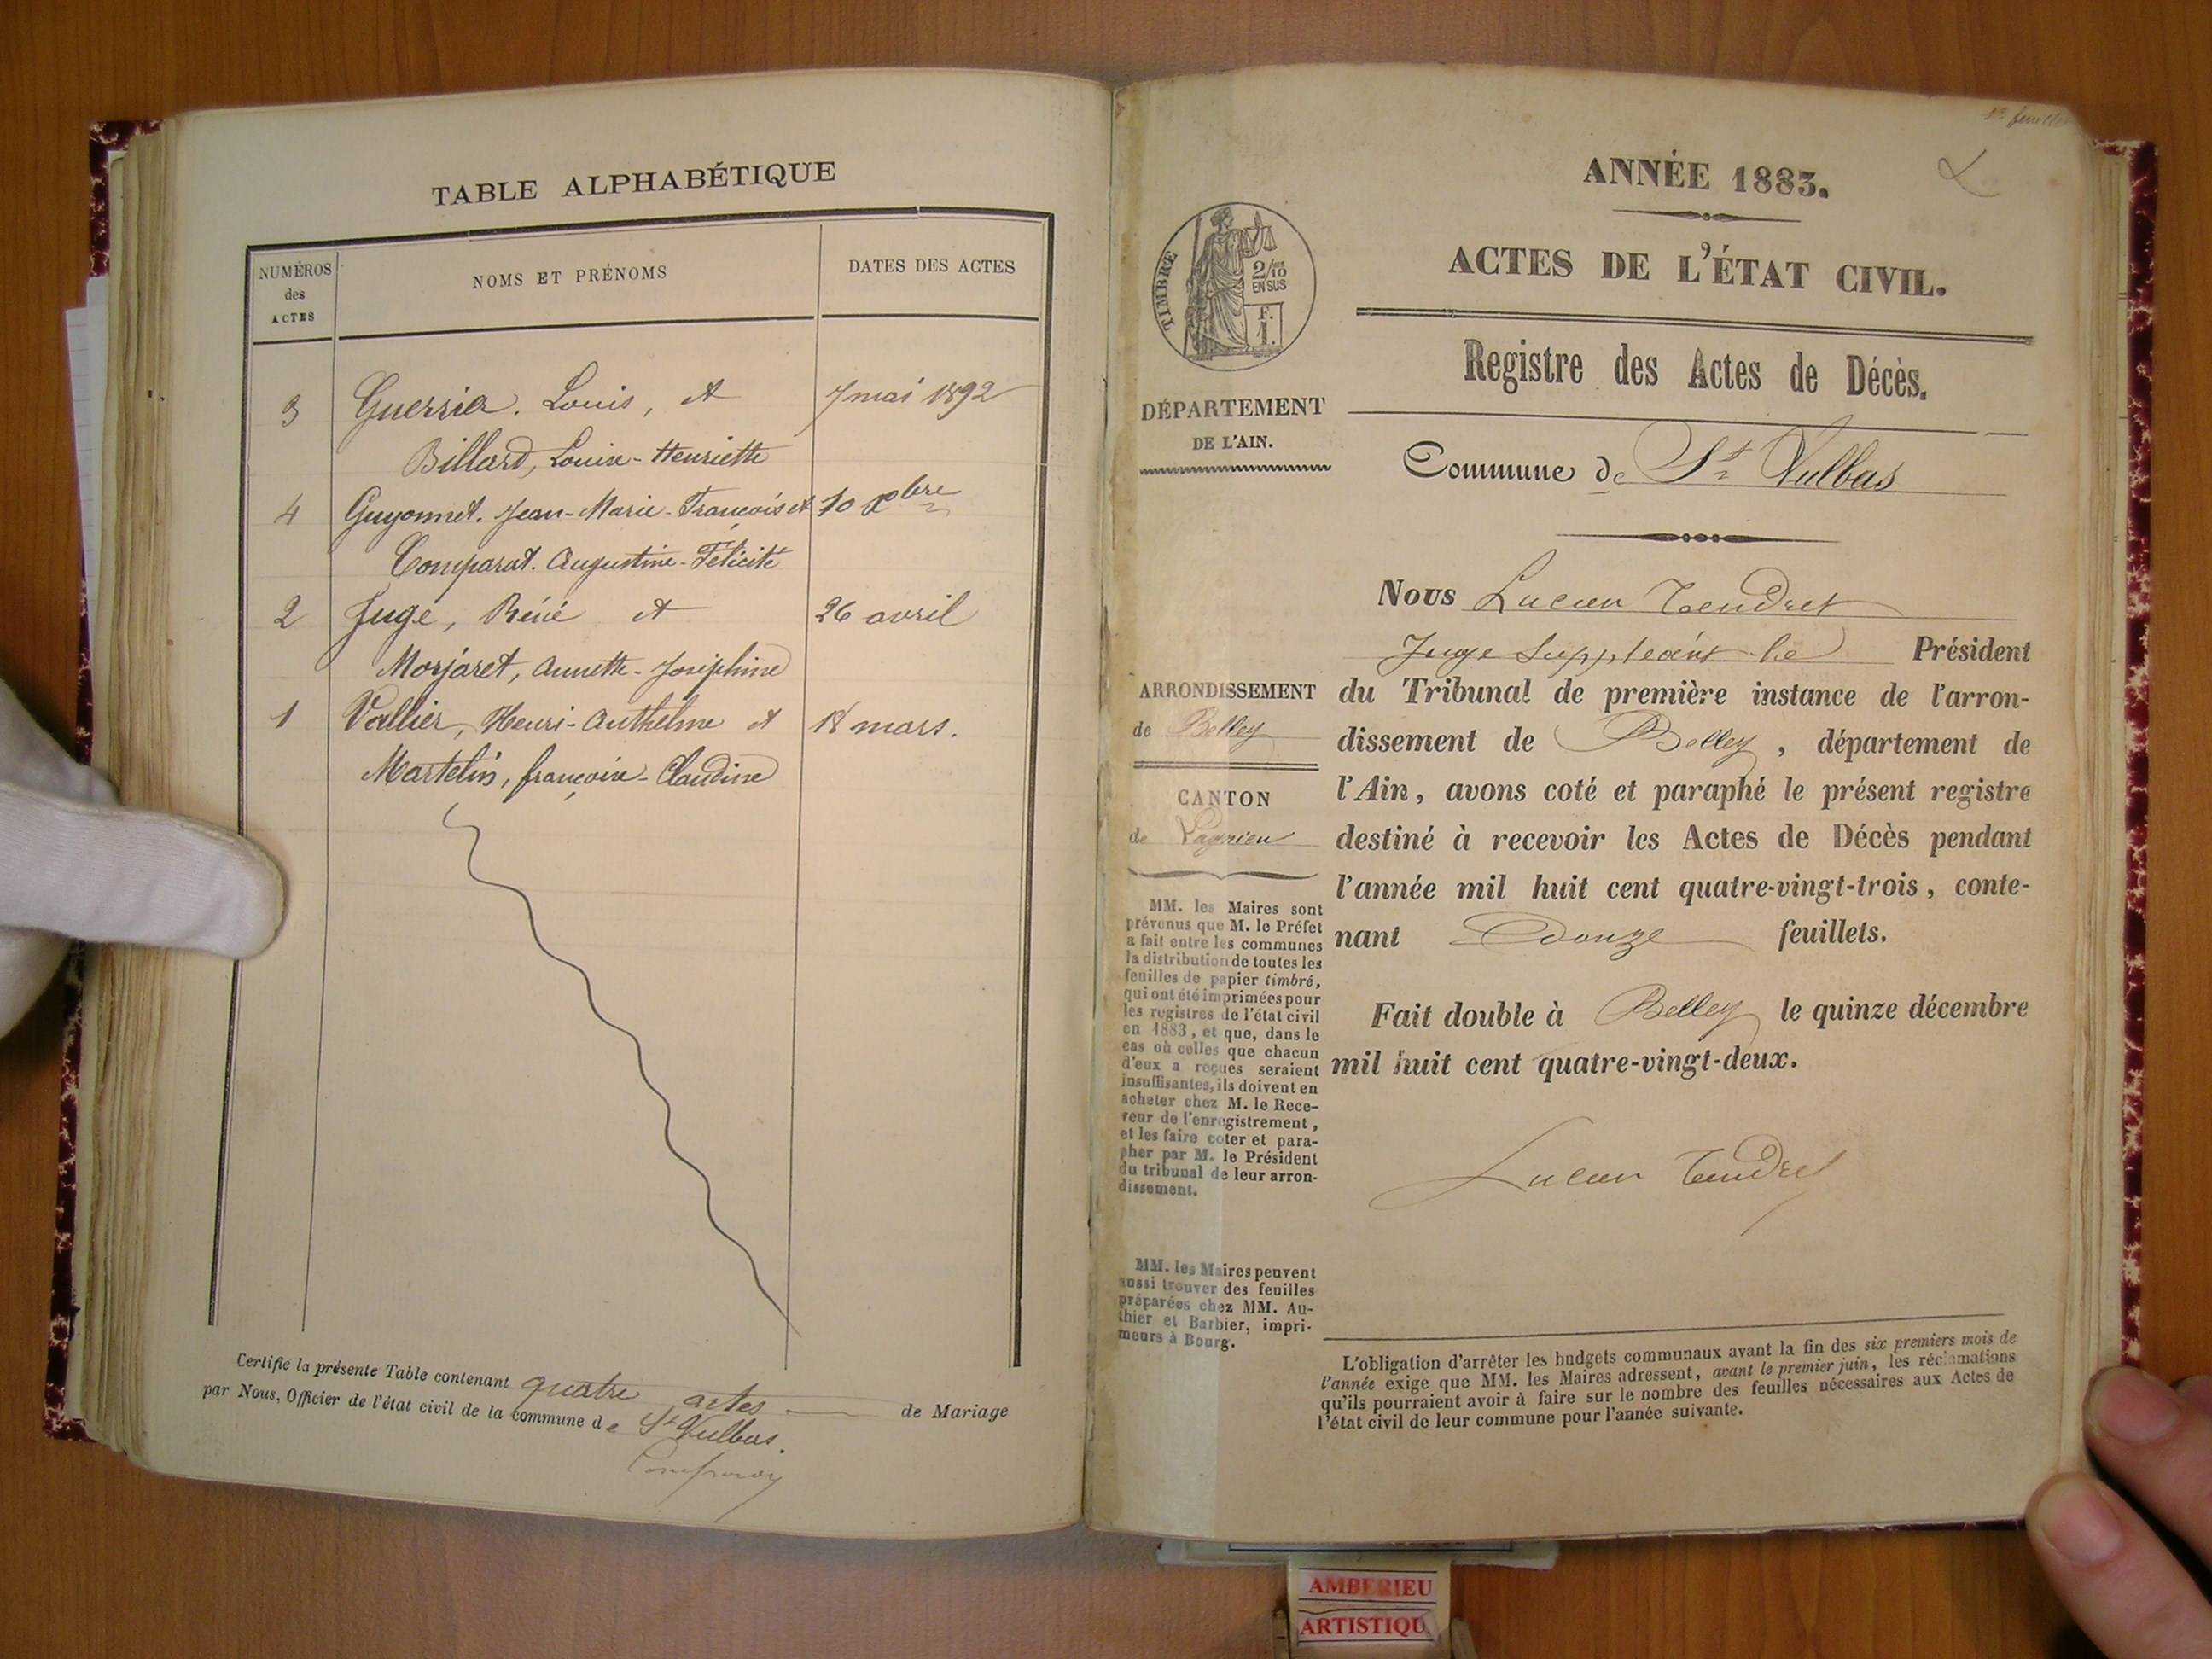 TABLE ALPHABÉTIQUE
NUMÉROS
des
ACTES
NOMS ET PRÉNOMS
DATES DES ACTES
3 Guerrier. Louis, et 7 mai 1892
Billard, Louise-Henriette
4 Guyonnet. Jean-Marie-François et 10 Xbre
Comparat. Augustine-Félicité
2 Juge, Réné et 26 avril
Morjaret, Annette-Joséphine
1 Vallier, Henri-Anthelme et 18 mars.
Martelin, françoise-Claudine
Certifie la présente Table contenant quatre actes de Mariage
par Nous, Officier de l'état civil de la commune de St Vulbas.
1er feuillet
ANNÉE 1883.
ACTES DE L'ÉTAT CIVIL.
Registre des Actes de Décès.
Commune de St Vulbas
TIMBRE
2/10
EN SUS
F.
1.
DÉPARTEMENT
DE L'AIN.
ARRONDISSEMENT
de Belley
CANTON
de Lagnieu
MM. les Maires sont
prévenus que M. le Préfet
a fait entre les communes
la distribution de toutes les
feuilles de papier timbré,
qui ont été imprimées pour
les registres de l'état civil
en 1883, et que, dans le
cas où celles que chacun
d'eux a reçues seraient
insuffisantes, ils doivent en
acheter chez M. le Rece-
veur de l'enregistrement,
et les faire coter et para-
pher par M. le Président
du tribunal de leur arron-
dissement.
MM. les Maires peuvent
aussi trouver des feuilles
préparées chez MM. Au-
thier et Barbier, impri-
meurs à Bourg.
Nous Lucien Tendret
Juge Suppléant le Président
du Tribunal de première instance de l'arron-
dissement de Belley, département de
l'Ain, avons coté et paraphé le présent registre
destiné à recevoir les Actes de Décès pendant
l'année mil huit cent quatre-vingt-trois, conte-
nant Douze feuillets.
Fait double à Belley le quinze décembre
mil huit cent quatre-vingt-deux.
Lucien Tendret
L'obligation d'arrêter les budgets communaux avant la fin des six premiers mois de
l'année exige que MM. les Maires adressent, avant le premier juin, les réclamations
qu'ils pourraient avoir à faire sur le nombre des feuilles nécessaires aux Actes de
l'état civil de leur commune pour l'année suivante.
AMBERIEU
ARTISTIQU